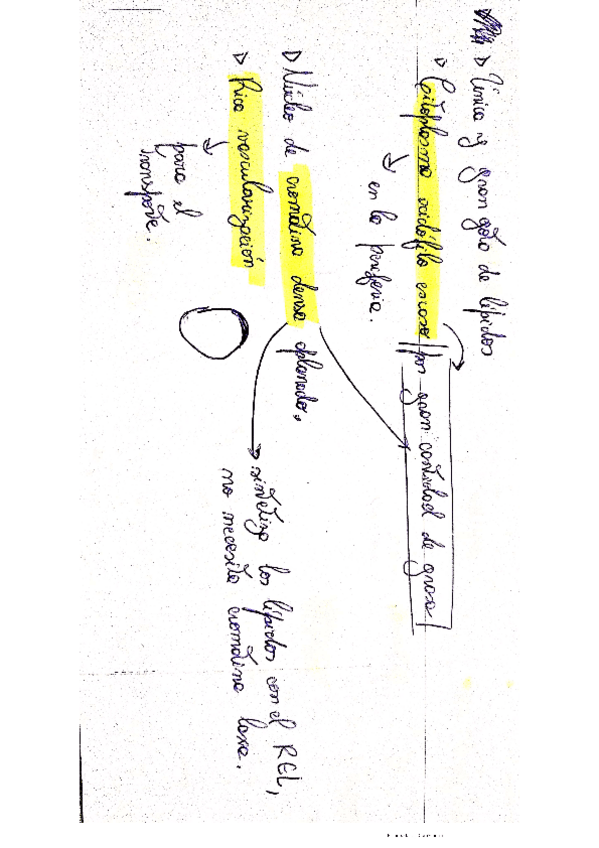 ▷ Única y gran gota de lípidos
▷ Citoplasma acidófilo escaso por gran cantidad de grasa!
en la periferia.
▷ Núcleo de cromatina densa aplanado,
sintetiza los lípidos con el REL,
no necesita cromatina laxa.
▷ Rica vascularización
para el
transporte.